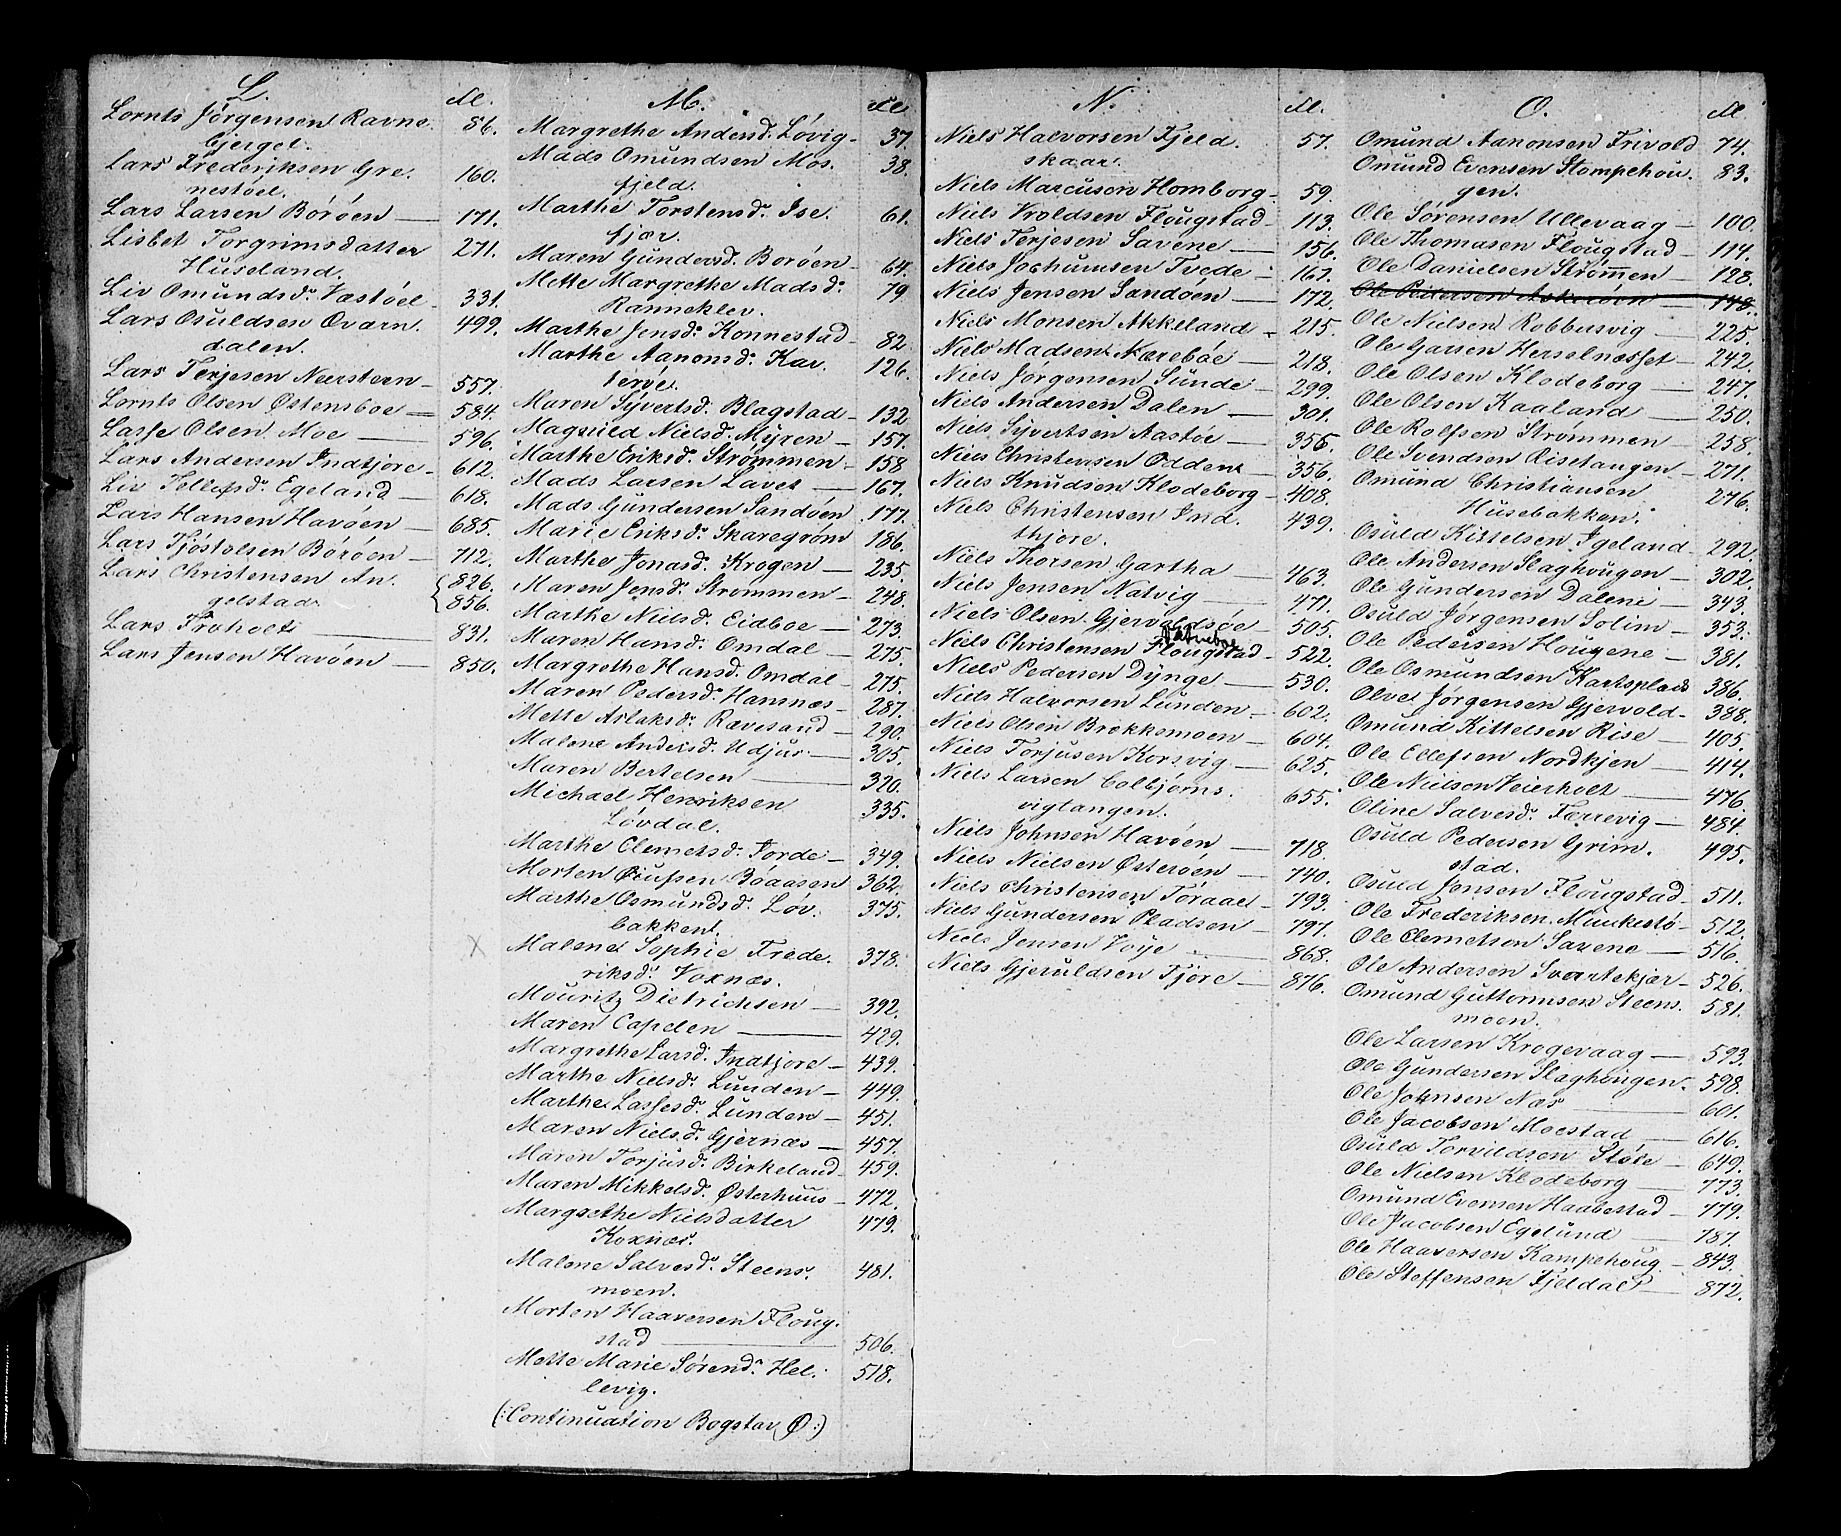 L.
Lornts Jørgensen Ravne- 86.
bjerget.
Lars Frederiksen Gre- 160.
nestøel.
Lars Larsen Børøen — 171.
Lisbet Torgrimsdatter 271.
Huseland.
Liv Omundsdr. Vastøel 331.
Lars Osuldsen Qvarn- 499.
dalen.
Lars Terjesen Neersteen 557.
Lornts Olsen Østensboe — 584.
Lasse Olsen Moe — 596.
Lars Andersen Indtjore 612.
Liv Tellefsdr. Egeland — 618.
Lars Hansen Havøen — 685.
Lars Tjøstolsen Børøen — 712.
Lars Christensen An- { 826.
gelstad { 856.
Lars Froholt — 831.
Lars Jensen Havøen — 850.
M.
Margrethe Andersd. Løvig 37.
Mads Omundsen Mos- 38.
fjeld.
Marthe Torstensdr. Ise- 61.
fjær.
Maren Gundersd. Borøen 64.
Mette Margrethe Madsdr. 79
Ranneklev.
Marthe Jensdr. Konnestad 82
Marthe Aanonsdr. Kal- 126.
lerve.
Maren Syvertsd. Blagstad 132
Magnild Nielsd. Myren 157.
Marthe Eriksd. Strømmen 158
Mads Larsen Lavet — 167.
Mads Gundersen Sandøen 177.
Marie Eriksdr. Skaregrøm 186.
Marthe Jonasdr. Krogen — 235.
Maren Jensdr. Strømmen 248.
Marthe Nielsd. Eidboe — 273.
Maren Hansdr. Omdal — 275.
Margrethe Hansd. Omdal 275.
Maren Pedersdr. Hansnæs 287.
Mette Aslaksdr. Rævesand 290.
Malene Andersd. Udjus — 305.
Maren Bertelsen — 320.
Michael Henriksen 335.
Løvdal.
Marthe Clemetsd. Torde 349.
Morten Boaasen 362.
Marthe Osmundsd. Løv- 375.
bakken.
X Malene Sophie Frede- 378.
riksdr. Voxnæs.
Mouritz Dietrichsen — 392.
Maren Capelen — 429.
Margrethe Larsd. Indtjore 439.
Marthe Nielsdr. Lunden 449.
Marthe Lassesdr. Lunden 451.
Maren Nielsd. Gjernæs 457.
Maren Torjusd. Birkeland 459.
Maren Mikkelsd. Østerhuus 472.
Margrethe Nielsdatter 479.
Koxnæs.
Malene Salvesdr. Steens- 481.
moen.
Morten Haaversen Floug-
stad — 506.
Mette Marie Sørensdr. Hel- 518.
levig.
(:Continuation Bogstav Ø:)
N.
Niels Halvorsen Fjeld- 57.
skaar.
Niels Marcuson Homborg 59.
Niels Vroldsen Flougstad 113.
Niels Terjesen Savene — 156.
Niels Jochumsen Tvede 162.
Niels Jensen Sandøen — 172.
Niels Monsen Akkeland 215.
Niels Madsen Nærebøe — 218.
Niels Jørgensen Sunde 299.
Niels Andersen Dalen — 301.
Niels Syvertsen Aastøe — 355.
Niels Christensen Odden 356.
Niels Knudsen Klodeborg 408.
Niels Christensen Ind- 439.
thjore.
Niels Thorsen Gartha — 463.
Niels Jensen Natvig — 471.
Niels Olsen Gjervoldsøe 505.
Niels Christensen Flougstad 522.
Niels Pedersen Dynge — 530.
Niels Halvorsen Lunden 602.
Niels Olsen Brekkemoen 604.
Niels Torjusen Korsvig 625.
Niels Larsen Colbjørns- 655.
vigtangen.
Niels Johnsen Havøen — 718.
Niels Nielsen Østerøen — 740.
Niels Christensen Toraael 793.
Niels Gundersen Pladsen 797.
Niels Jensen Voje — 868.
Niels Gjeruldsen Fjore 876.
O.
Omund Aanonsen Frivold 74.
Omund Evensen Stompehou- 83.
gen.
Ole Sørensen Ullevaag — 100.
Ole Thomasen Flougstad 114.
Ole Danielsen Strømmen 128.
Ole Pedersen Askerøen 148.
Ole Nielsen Robbusvig — 225.
Ole Garsen Herselnæsset 242.
Ole Olsen Klodeborg — 247.
Ole Olsen Kaaland — 250.
Ole Rolfsen Strømmen 258.
Ole Svendsen Risetangen 271.
Omund Christiansen 276.
Husebakken.
Osuld Kittelsen Igeland 292.
Ole Andersen Slaghougen 302.
Ole Gundersen Dalene — 343.
Osuld Jørgensen Solim — 353.
Ole Pedersen Hougene — 381.
Ole Osmundsen Kartsplads 386.
Olve Jørgensen Gjervold 388.
Omund Kittelsen Rise — 405.
Ole Ellefsen Nordkjen — 414.
Ole Nielsen Veierholt — 476.
Oline Salvesdr. Færrevig 484.
Osuld Pedersen Grim- 495.
stad.
Osuld Jensen Flougstad 511.
Ole Frederiksen Munkestø 512.
Ole Clemetsen Savene — 516.
Ole Andersen Svartekjær 526.
Omund Guttormsen Steens- 581.
moen.
Ole Larsen Krogevaag — 593.
Ole Gundersen Slaghougen 598.
Ole Johnsen Næs — 601.
Ole Jacobsen Moestad — 616.
Osuld Torvildsen Støle 649.
Ole Nielsen Klodeborg 773.
Omund Evensen Haabestad 779.
Ole Jacobsen Egelund — 787.
Ole Haaversen Kampehoug 843.
Ole Steffensen Fjeldal — 872.